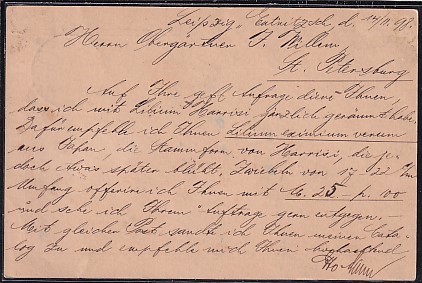 Leipzig Eutritzsch d. 14/11. 98.
Herrn Obergärtner J. Willem
St. Petersburg
Auf Ihre gefl Anfrage diene Ihnen
dass ich mit Lilium Harrisi gänzlich geräumt habe.
Dafür empfehle ich Ihnen Lilium eximium verum
aus Japan, die Stammform von Harrisi, die je-
doch etwas später blüht, Zwiebeln von 17-22 Cm
Umfang offerire ich Ihnen mit M. 25 p. 100
und sehe ich Ihrem Auftrage gern entgegen. –
Mit gleicher Post sandte ich Ihnen meinen Cata-
log zu und empfehle mich Ihnen hochachtend
Otto Mann